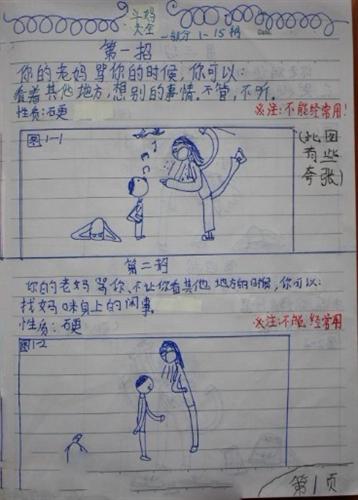 斗妈大全
一部分 1-15招
第一招
你的老妈骂你的时候,你可以:
看着其他地方,想别的事情.不管,不听.
性质:石更
必注:不能经常用!
图1-1
(此图有些夸张)
第二招
你的老妈骂你、不让你看其他地方的时候,你可以:
找妈咪身上的闲事。
性质:石更
必注:不能经常用
图1-2
第1页